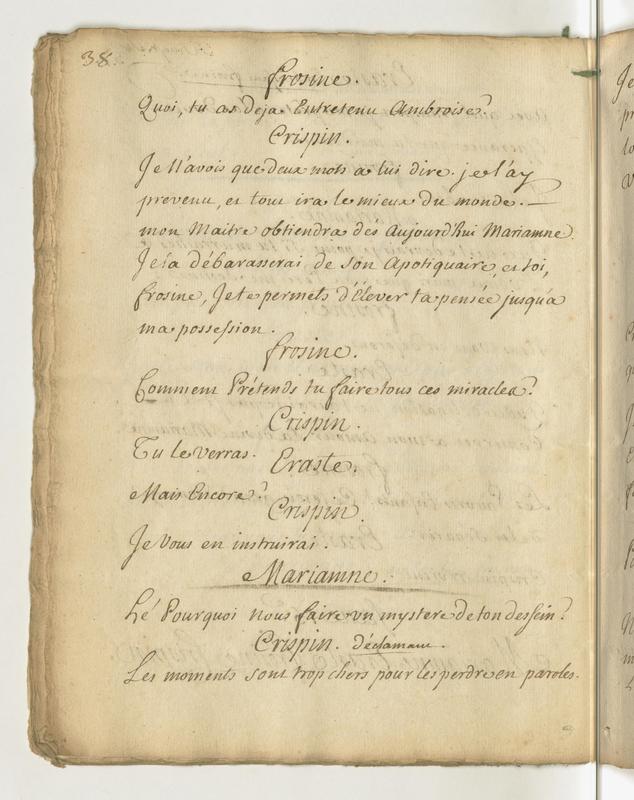 38.
frosine.
Quoi, tu as deja Entretenu Ambroise?
Crispin.
Je n'avois que deux mots a lui dire. je l'ay
prevenu, et tout ira le mieux du monde. —
mon Maitre obtiendra dés Aujourd'hui Mariamne.
Je la débarasserai de son Apotiquaire, et toi,
frosine, Je te permets d'Élever ta pensée jusqu'a
ma possession.
frosine.
Comment Prétends tu faire tous ces miracles?
Crispin.
Tu le verras.
Eraste.
Mais Encore?
Crispin.
Je Vous en instruirai.
Mariamne.
hé Pourquoi nous faire un mystere de ton dessein?
Crispin. Déclamant.
Les moments sont trop chers pour les perdre en paroles.